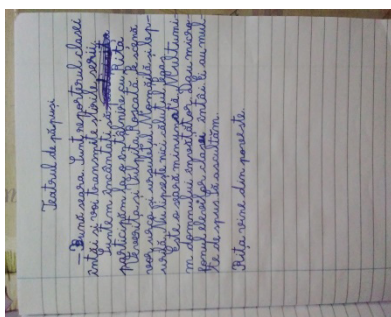 Teatrul de păpuși
– Bună seara. Sunt reporterul clasei
întâi și voi transmite știrile serii.
Suntem încântați să
participăm la o întâlnire cu Rița
Veverița și Vulpița Roșcată. Le sapă
vor urșa și ursulețul Momăilă și lep-
urilă. Nu lipsește nici căluțul Egaz.
Este o seară minunată. Mulțumi-
m domnului învățător. Dau micro-
fonul elevilor clasei întâi. Ei au mul-
te de spus. Să ascultăm.
Rița vine din poveste.